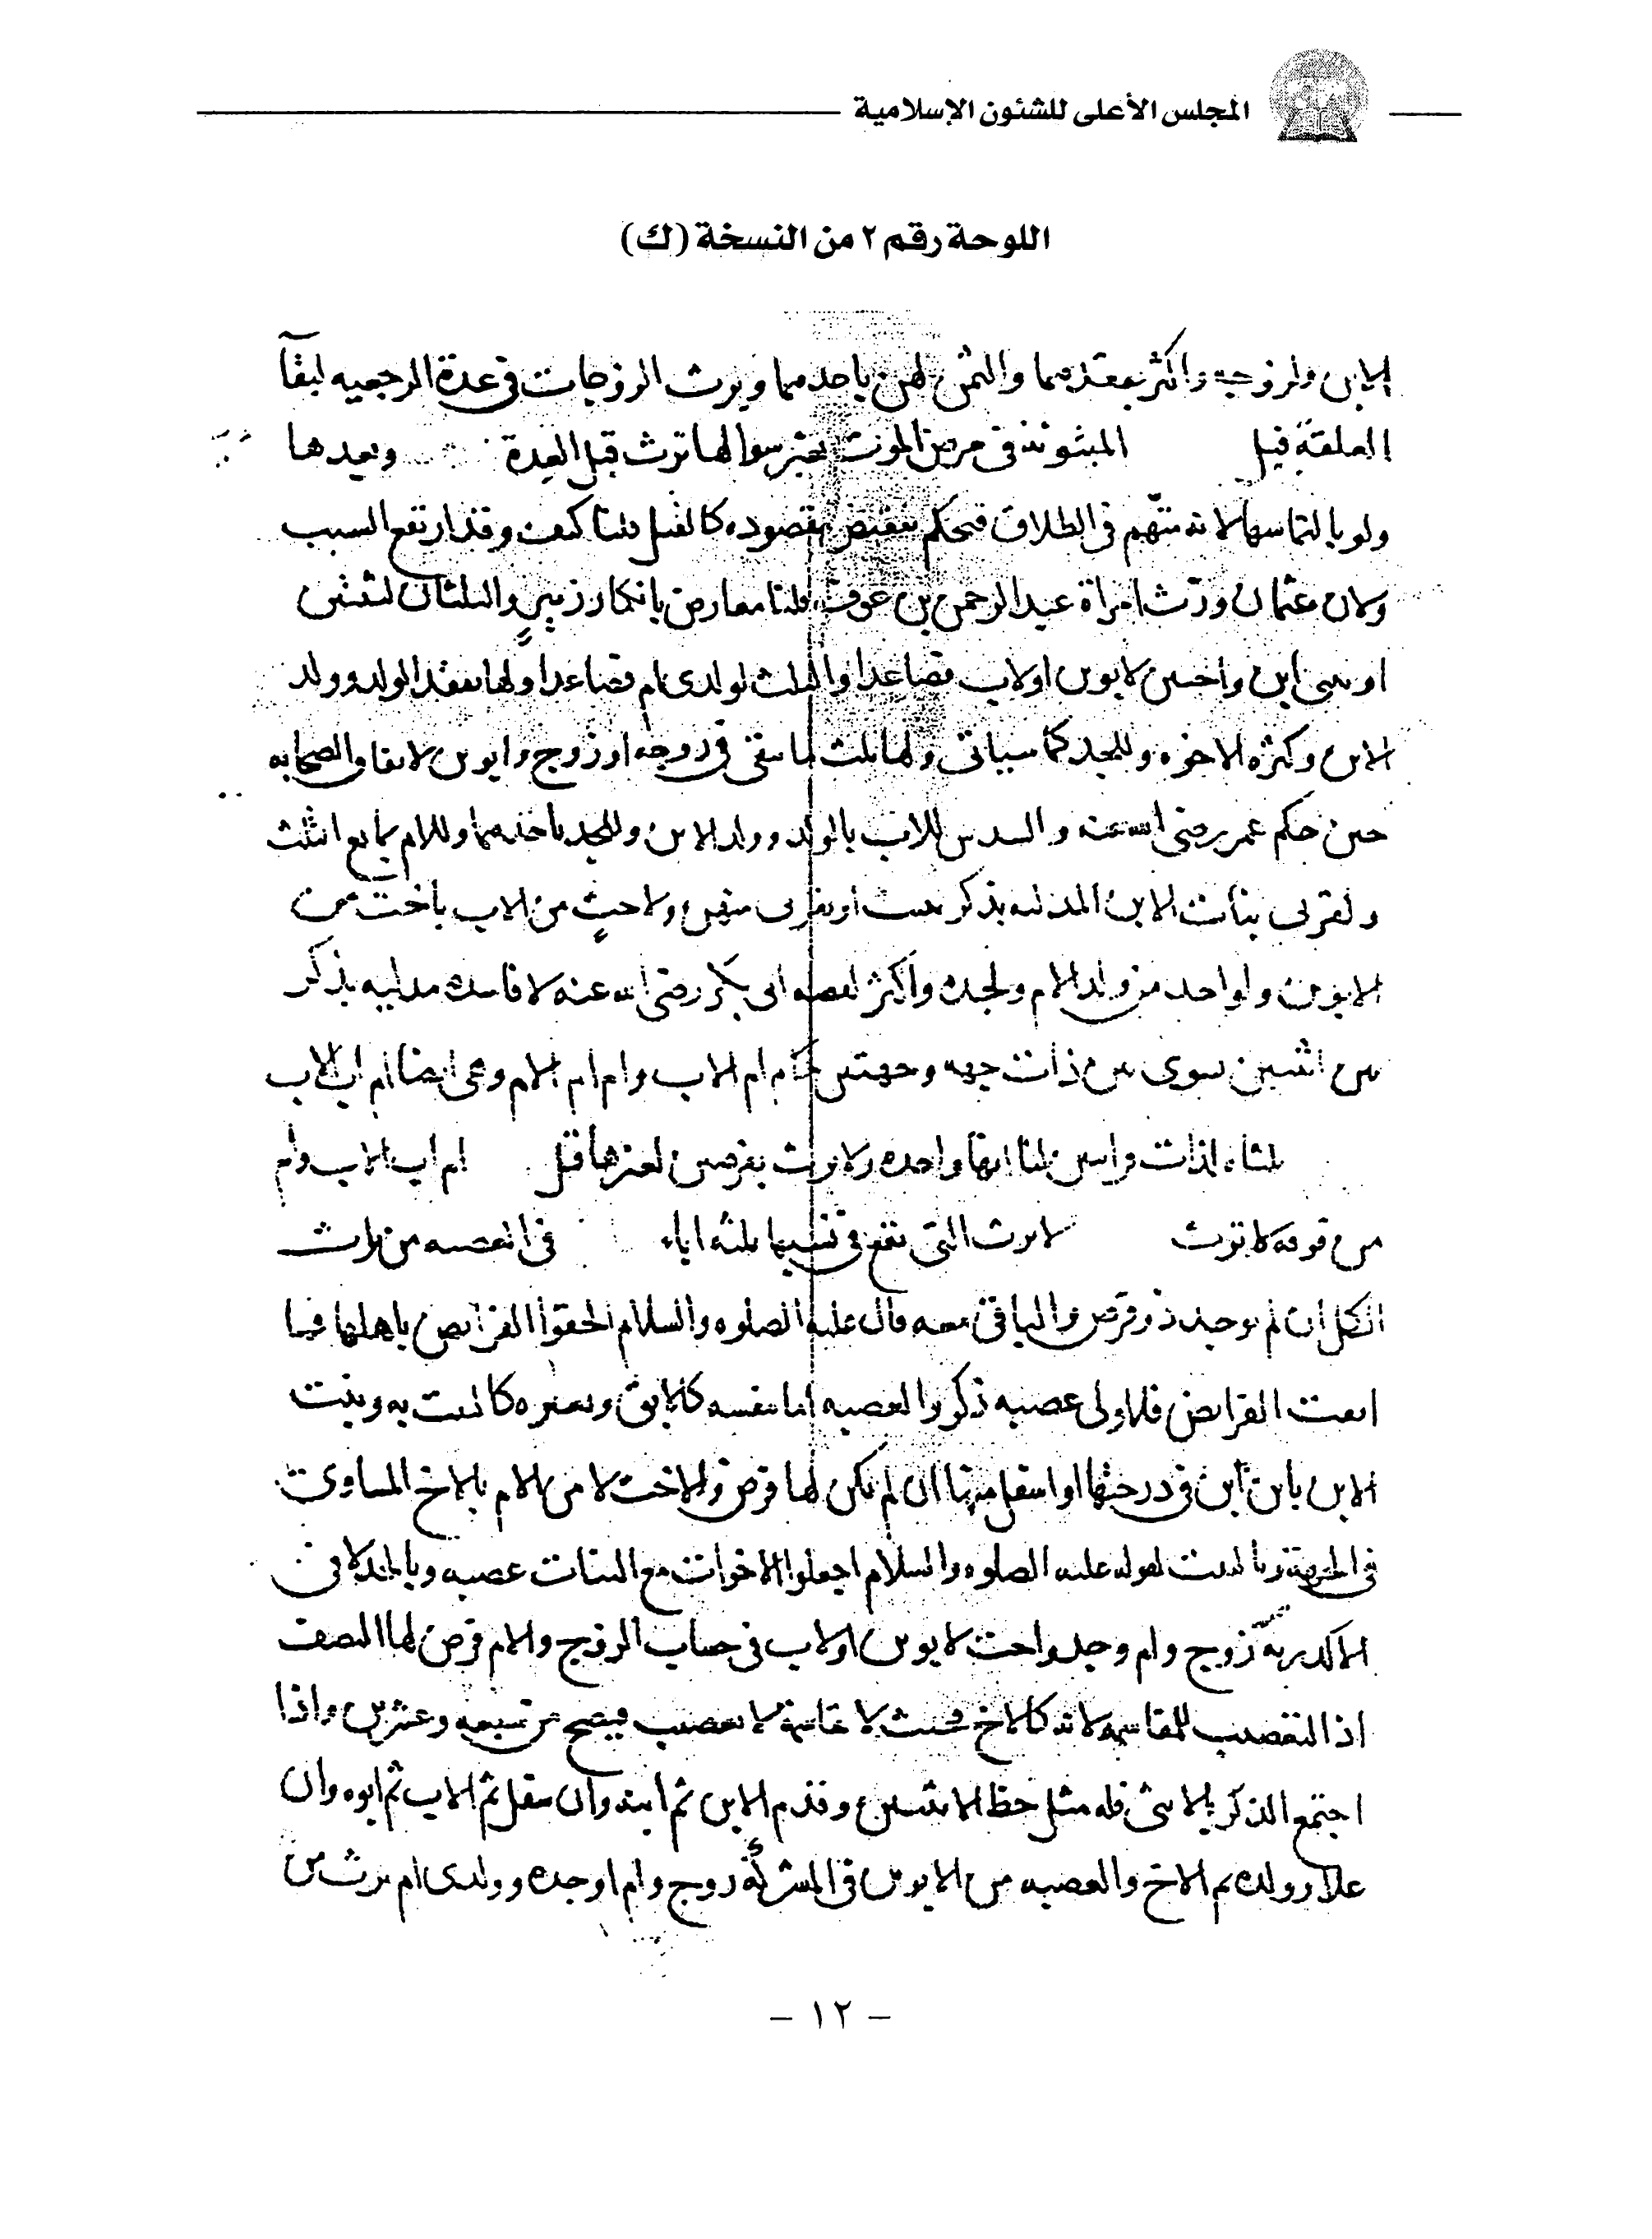 المجلس الأعلى للشئون الإسلامية
اللوحة رقم ٢ من النسخة (ك)
الابن ولزوجه واكثر بفقدهما والثمن لهن باحدهما ويرث الزوجات في عدة الرجعيه لبقآ
العلقة قيل المبتوته في مرض الموت بغير سوالها ترث قبل العدة وبعدها
ولو بالتماسها لانه متهم في الطلاق فيحكم بنقيض مقصوده كالقتل قلنا كيف وقد ارتفع السبب
ولان عثمان ورث امراة عبد الرحمن بن عوف قلنا معارض بانكار زبير والثلثان لثنتى
او بنتي ابن واختين لابوين اولاب فصاعدا والثلث لولدى ام فصاعدا ولها بفقد الولد وولد
الابن وكثرة الاخوه وللجد كما سياتى ولها ثلث ما يبقى في زوجه او زوج وابوين لاتفاق الصحابه
حين حكم عمر رضي الله عنه والسدس للاب بالولد وولد الابن وللجد باحدهما وللام بمانع الثلث
ولقربى بنات الابن المدليه بذكر ببنت او بقربى منهن ولاخت من الاب باخت من
الابوين ولواحد من ولد الام ولجده واكثر لقصه ابى بكر رضي الله عنه لا فاسده مدليه بذكر
بين انثيين سوى بين ذات جهه وجهتين كام ام الاب وام ام الام وهى ايضا ام اب الاب
ثلثاه لذات قرابتين قلنا انها واحده ولا يورث بفرضين لغيرها قيل ام اب الاب وام
من فوقه لا تورث لا يرث التى تقع في نسبها ثلثه اباء في العصبه من يرث
الكل ان لم يوجد ذو فرض والباقى معه قال عليه الصلوه والسلام الحقوا الفرائض باهلها فما
ابقت الفرائض فلاولى عصبه ذكر والعصبه اما بنفسه كالابن وبغيره كالبنت به وبنت
الابن بابن ابن في درجتها او اسفل منها ان لم يكن لها فرض والاخت لا من الام بالاخ المساوى
في القوة وبالبنت لقوله عليه الصلوه والسلام اجعلوا الاخوات مع البنات عصبه وبالجد لا في
الاكدريه زوج وام وجد واخت لابوين اولاب في حساب الزوج والام فرض لها النصف
اذا التعصيب للمقاسمه لانه كالاخ فحيث لا مقاسمة لا تعصيب فيصح من سبعه وعشرين واذا
اجتمع الذكر بالانثى فله مثل حظ الانثيين وقدم الابن ثم ابنه وان سفل ثم الاب ثم ابوه وان
علا وولده ثم الاخ والعصبه من الابوين في المشركة زوج وام او جده وولدى ام يرث من
- ١٢ -